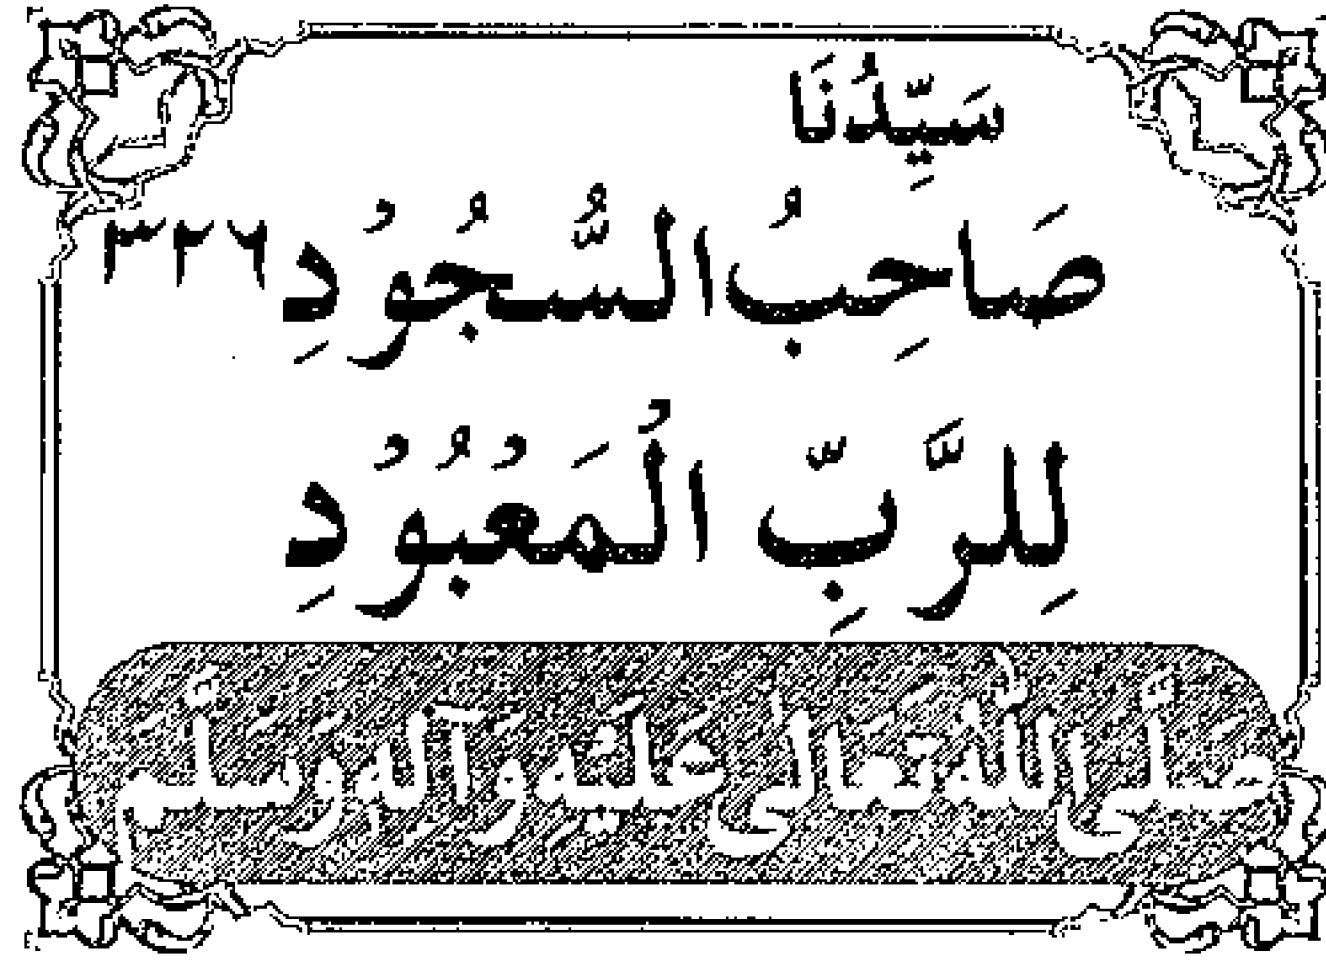 سَيِّدُنَا
صَاحِبُ السُّجُوْدِ ٣٢٦
لِلرَّبِّ الْمَعْبُوْدِ
صَلَّى اللّٰهُ تَعَالٰى عَلَيْهِ وَآلِهٖ وَسَلَّم